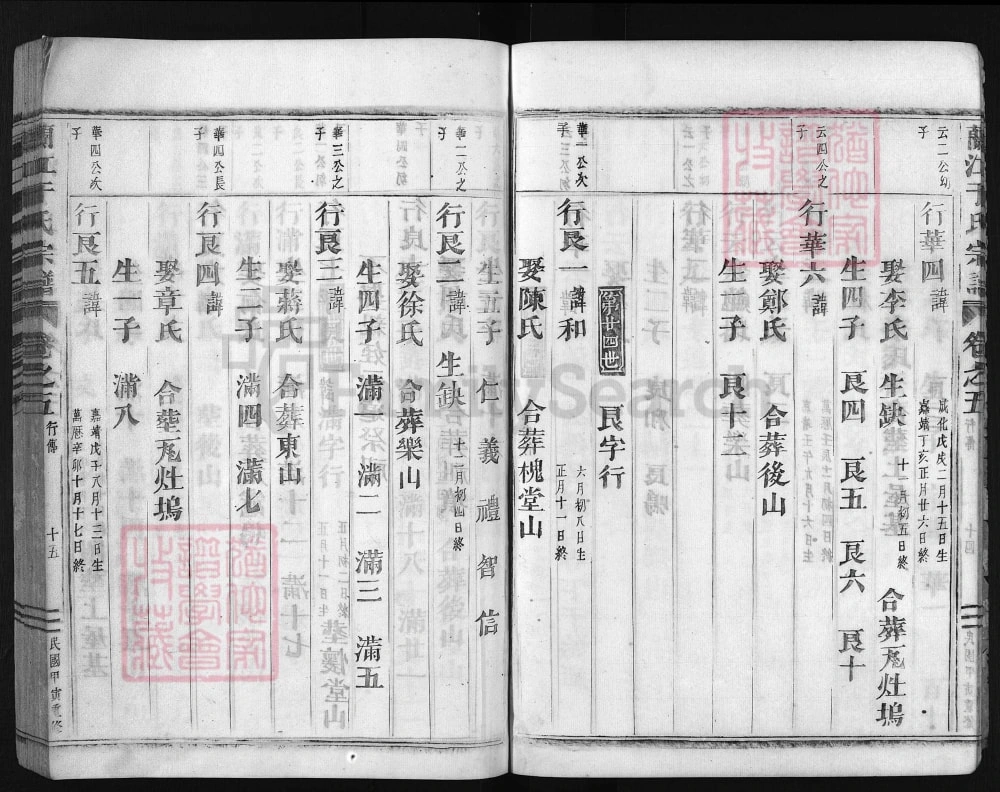 蘭江于氏宗譜 卷之五 行傳 十四
云二公幼子
行華四 諱
成化戊戌二月十五日生
嘉靖丁亥正月廿六日終
娶李氏 生缺 十二月初五日終 合葬瓦灶塢
生四子 艮四 艮五 艮六 艮十
云四公之子
行華六 諱
娶鄭氏 合葬後山
生一子 艮十二
第廿四世 艮字行
華一公次子
行艮一 諱和
六月初八日生
正月十一日終
娶陳氏 合葬槐堂山
生五子 仁 義 禮 智 信
華二公之子
行艮二 諱 生缺 十二月初四日終
娶徐氏 合葬樂山
生四子 滿一 滿二 滿三 滿五
華三公之子
行艮三 諱
娶蔣氏 合葬東山
生二子 滿四 滿七
華四公長子
行艮四 諱
娶章氏 合葬瓦灶塢
生一子 滿八
華四公次子
行艮五 諱
嘉靖戊子八月十三日生
萬厯辛卯十月十七日終
蘭江于氏宗譜 卷之五 行傳 十五 民國甲寅重修
FamilySearch